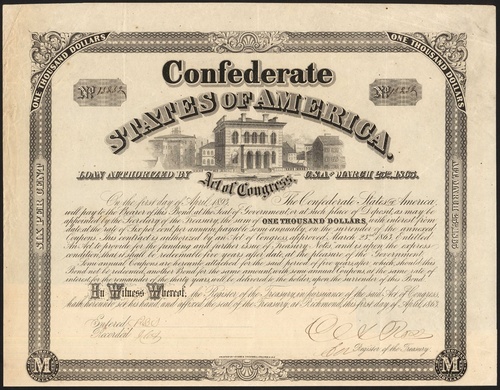 ONE THOUSAND DOLLARS
ONE THOUSAND DOLLARS
Confederate
STATES OF AMERICA.
LOAN AUTHORIZED BY
Act of Congress,
C.S.A. OF MARCH 23D, 1863.
On the first day of April, 1893, The Confederate States of America
will pay to the Bearer of this Bond, at the Seat of Government, or at such place of Deposit, as may be
appointed by the Secretary of the Treasury, the sum of ONE THOUSAND DOLLARS, with interest from
date, at the rate of Six per cent per annum, payable semi annually, on the surrender of the annexed
Coupons. This contract is authorized by an Act of Congress, approved, March 23rd 1863, Entitled
An Act to provide for the funding and further issue of Treasury Notes, and is upon the express
condition, that it shall be redeemable five years after date, at the pleasure of the Government.
Semi annual Coupons are hereunto attached for the said period of five years, after which, should this
Bond not be redeemed, another Bond for the same amount, with semi annual Coupons at the same rate of
interest for the remainder of the thirty years will be delivered to the holder, upon the surrender of this Bond.
In Witness Whereof, the Register of the Treasury, in pursuance of the said Act of Congress,
hath hereunto set his hand, and affixed the seal of the Treasury, at Richmond, this first day of April, 1863
Entered
Recorded
For Register of the Treasury
M
M